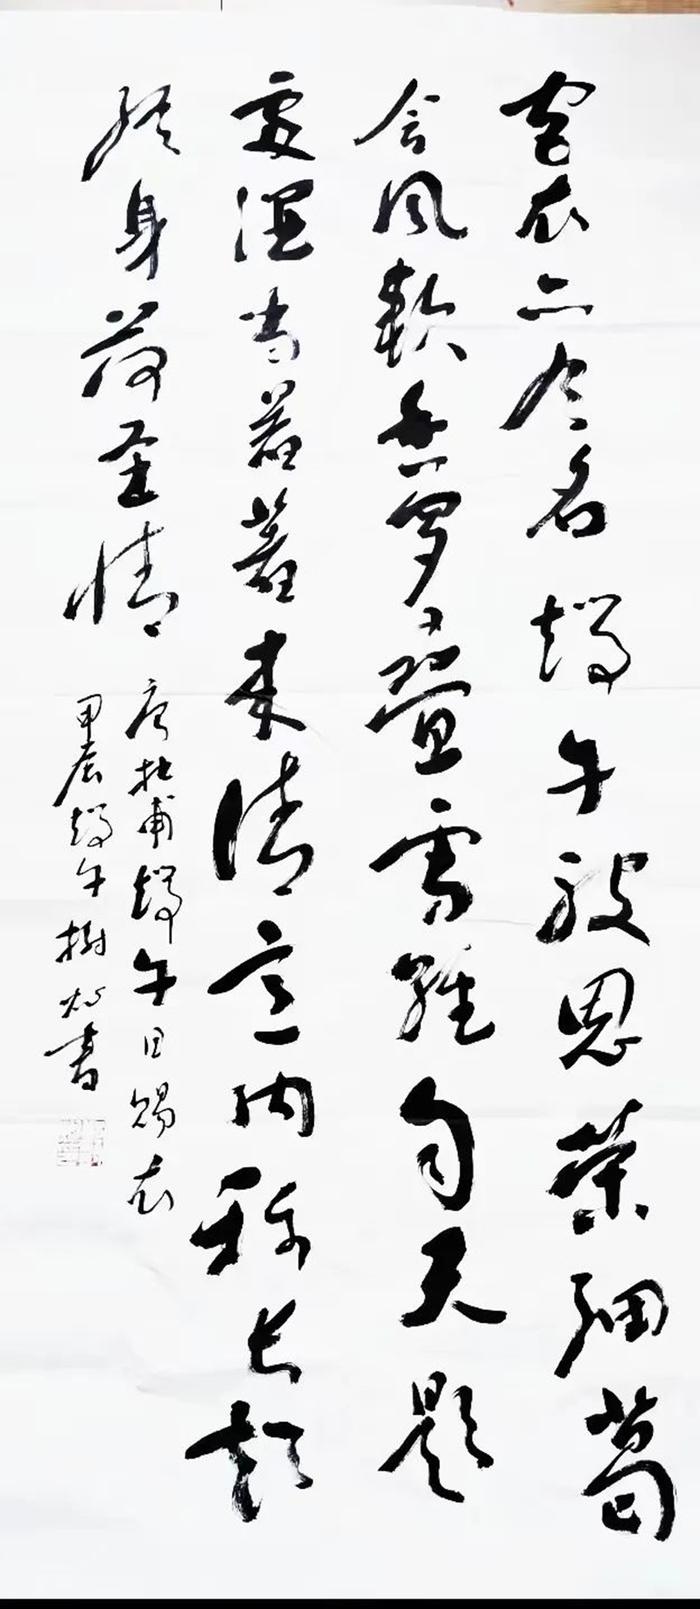 宫衣亦有名端午被恩荣细葛
含风软香罗叠雪轻自天题
处湿当暑著来清意内称长短
终身荷圣情
唐杜甫端午日赐衣
甲辰端午树书